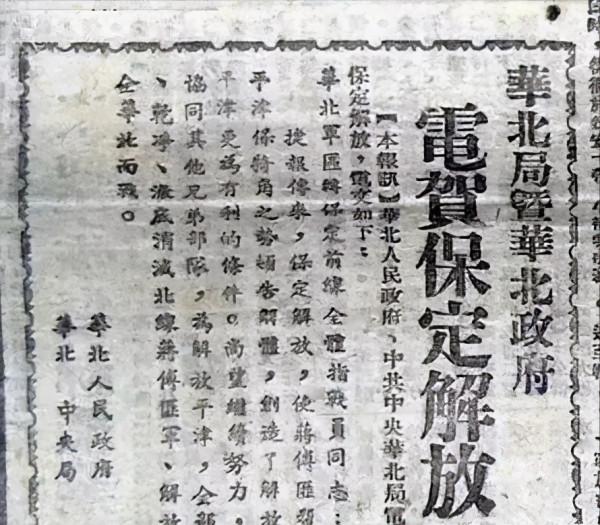 華北局暨華北政府
電賀保定解放
【本報訊】華北人民政府、中共中央華北局電
保定解放,電文如下:
華北軍區轉保定前線全體指戰員同志:
捷報傳來,保定解放,使蔣傅匪
平津保犄角之勢頓告解體,創造了解放
平津更為有利的條件。尚望繼續努力,
協同其他兄弟部隊,為解放平津,全部
、乾淨、澈底消滅北線蔣傅匪軍、解放
全華北而戰。
華北人民政府
華北 中央局